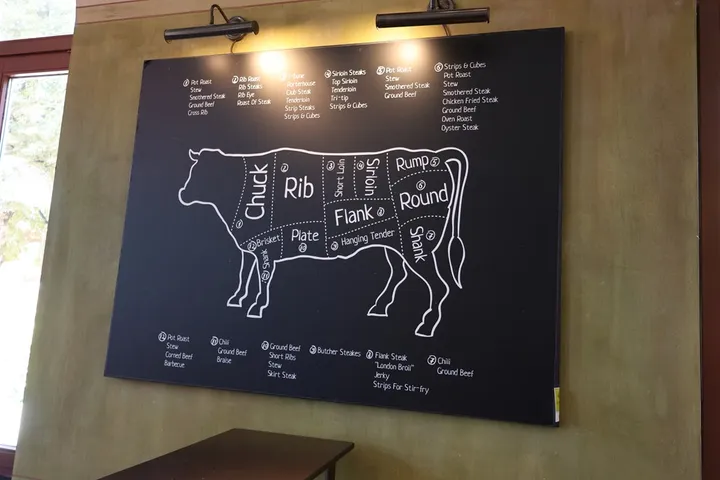 ① Pot Roast
Stew
Smothered Steak
Ground Beef
Cross Rib
② Rib Roast
Rib Steaks
Rib Eye
Roast Of Steak
Porterhouse
Club Steak
Tenderloin
Strip Steaks
Strips & Cubes
④ Sirloin Steaks
Top Sirloin
Tenderloin
Tri-tip
Strips & Cubes
⑤ Pot Roast
Stew
Smothered Steak
Ground Beef
⑥ Strips & Cubes
Pot Roast
Stew
Smothered Steak
Chicken Fried Steak
Ground Beef
Oven Roast
Oyster Steak
Chuck ①
Rib ②
Short Loin ③
Sirloin ④
Rump ⑤
Round ⑥
Flank ⑧
Shank ⑦
Brisket ⑫
Plate ⑩
Hanging Tender ⑨
Shank ⑪
⑫ Pot Roast
Stew
Corned Beef
Barbecue
⑪ Chili
Ground Beef
Braise
⑩ Ground Beef
Short Ribs
Stew
Skirt Steak
⑨ Butcher Steakes
⑧ Flank Steak
"London Broil"
Jerky
Strips For Stir-fry
⑦ Chili
Ground Beef